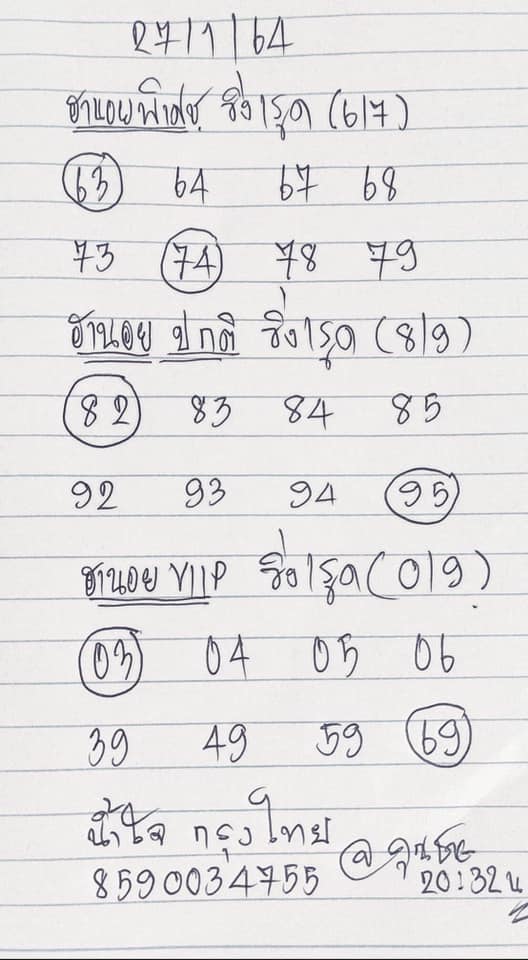 27/1/64
ฮานอยพิเศษ วิ่ง/รูด (6/7)
63 64 67 68
73 74 78 79
ฮานอย ปกติ วิ่ง/รูด (8/9)
82 83 84 85
92 93 94 95
ฮานอย VIIP วิ่ง/รูด (0/9)
03 04 05 06
39 49 59 69
น้ำใจ กรุงไทย
8590034755 @
20:32 น